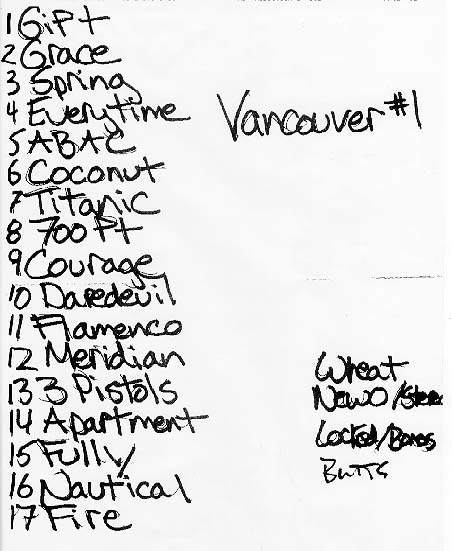 1 Gift
2 Grace
3 Spring
4 Everytime
5 ABAC
6 Coconut
7 Titanic
8 700 Ft
9 Courage
10 Daredevil
11 Flamenco
12 Meridian
13 3 Pistols
14 Apartment
15 Fully
16 Nautical
17 Fire
Vancouver #1
Wheat
NewO/Stere
Locked/Bones
Butts